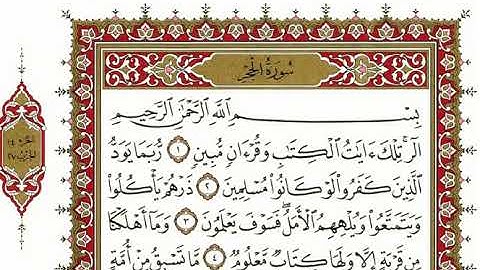 سُورَةُ الحِجْرِ
بِسْمِ اللَّهِ الرَّحْمَٰنِ الرَّحِيمِ
الٓر ۚ تِلْكَ ءَايَٰتُ ٱلْكِتَٰبِ وَقُرْءَانٍ مُّبِينٍ ١ رُّبَمَا يَوَدُّ
ٱلَّذِينَ كَفَرُوا۟ لَوْ كَانُوا۟ مُسْلِمِينَ ٢ ذَرْهُمْ يَأْكُلُوا۟
وَيَتَمَتَّعُوا۟ وَيُلْهِهِمُ ٱلْأَمَلُ ۖ فَسَوْفَ يَعْلَمُونَ ٣ وَمَآ أَهْلَكْنَا
مِن قَرْيَةٍ إِلَّا وَلَهَا كِتَابٌ مَّعْلُومٌ ٤ مَّا تَسْبِقُ مِنْ أُمَّةٍ